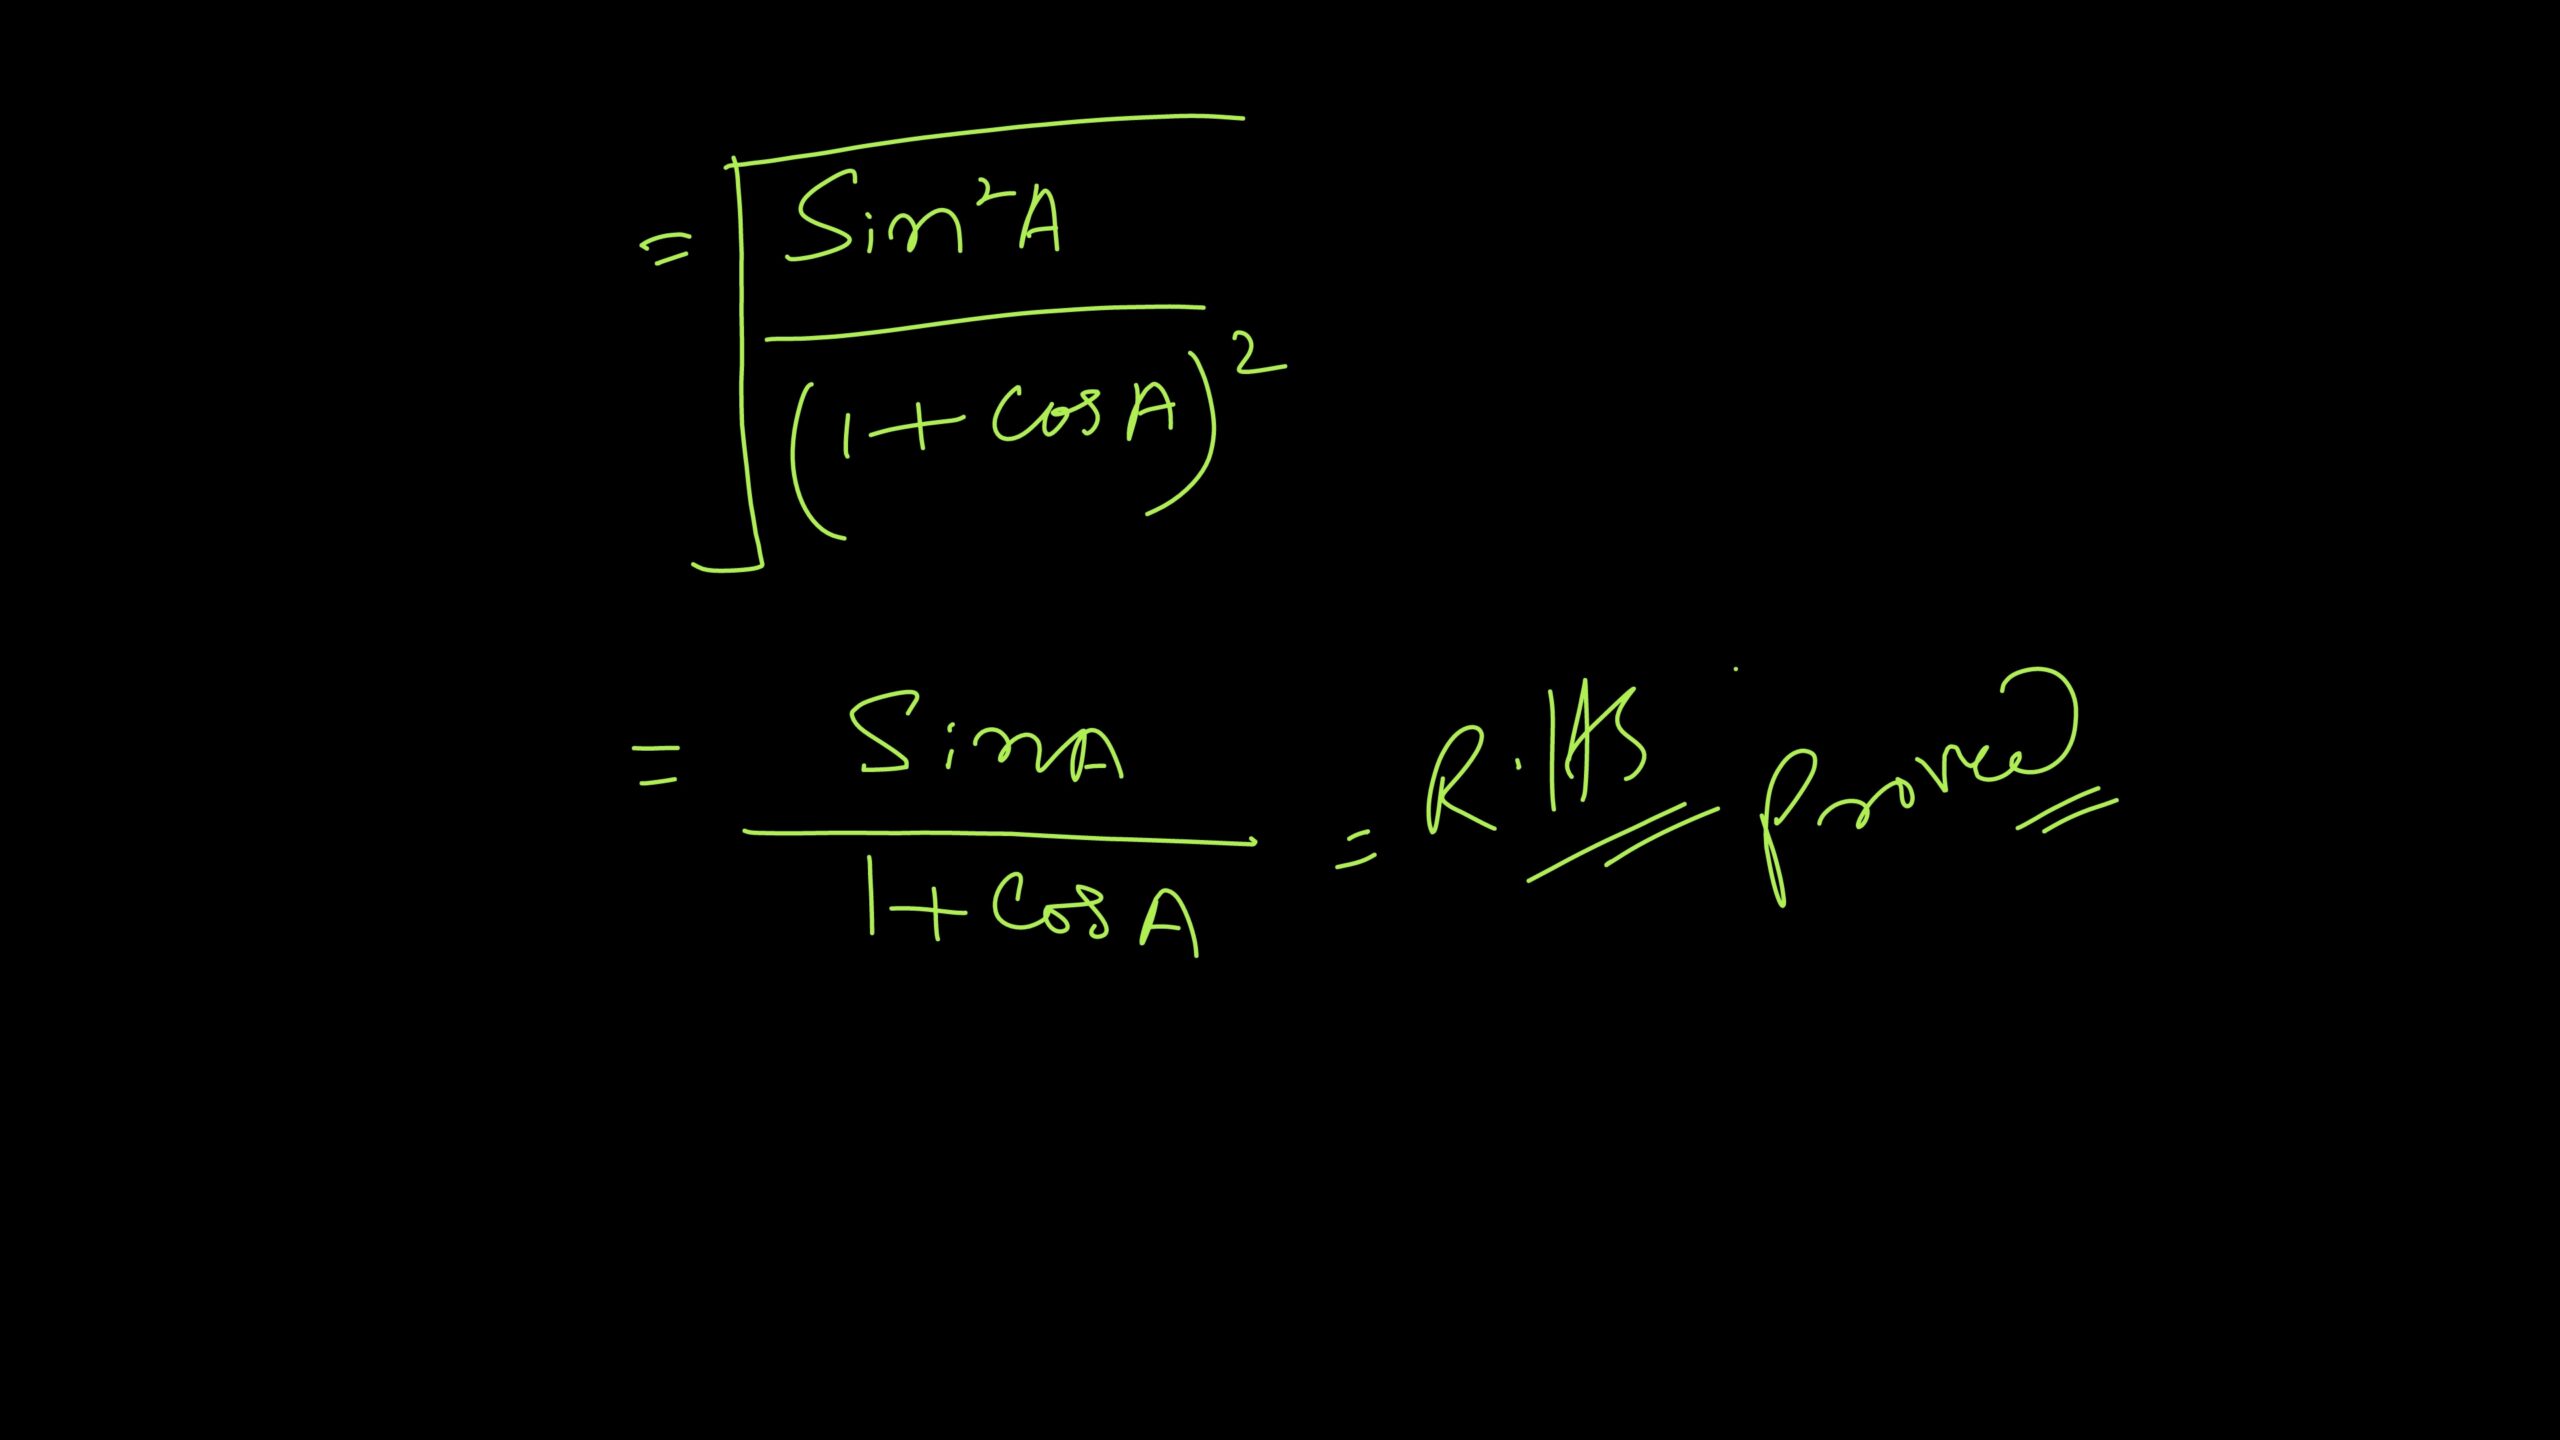 = √(Sin²A / (1 + CosA)²)
= SinA / (1 + CosA) = R.HS Proved